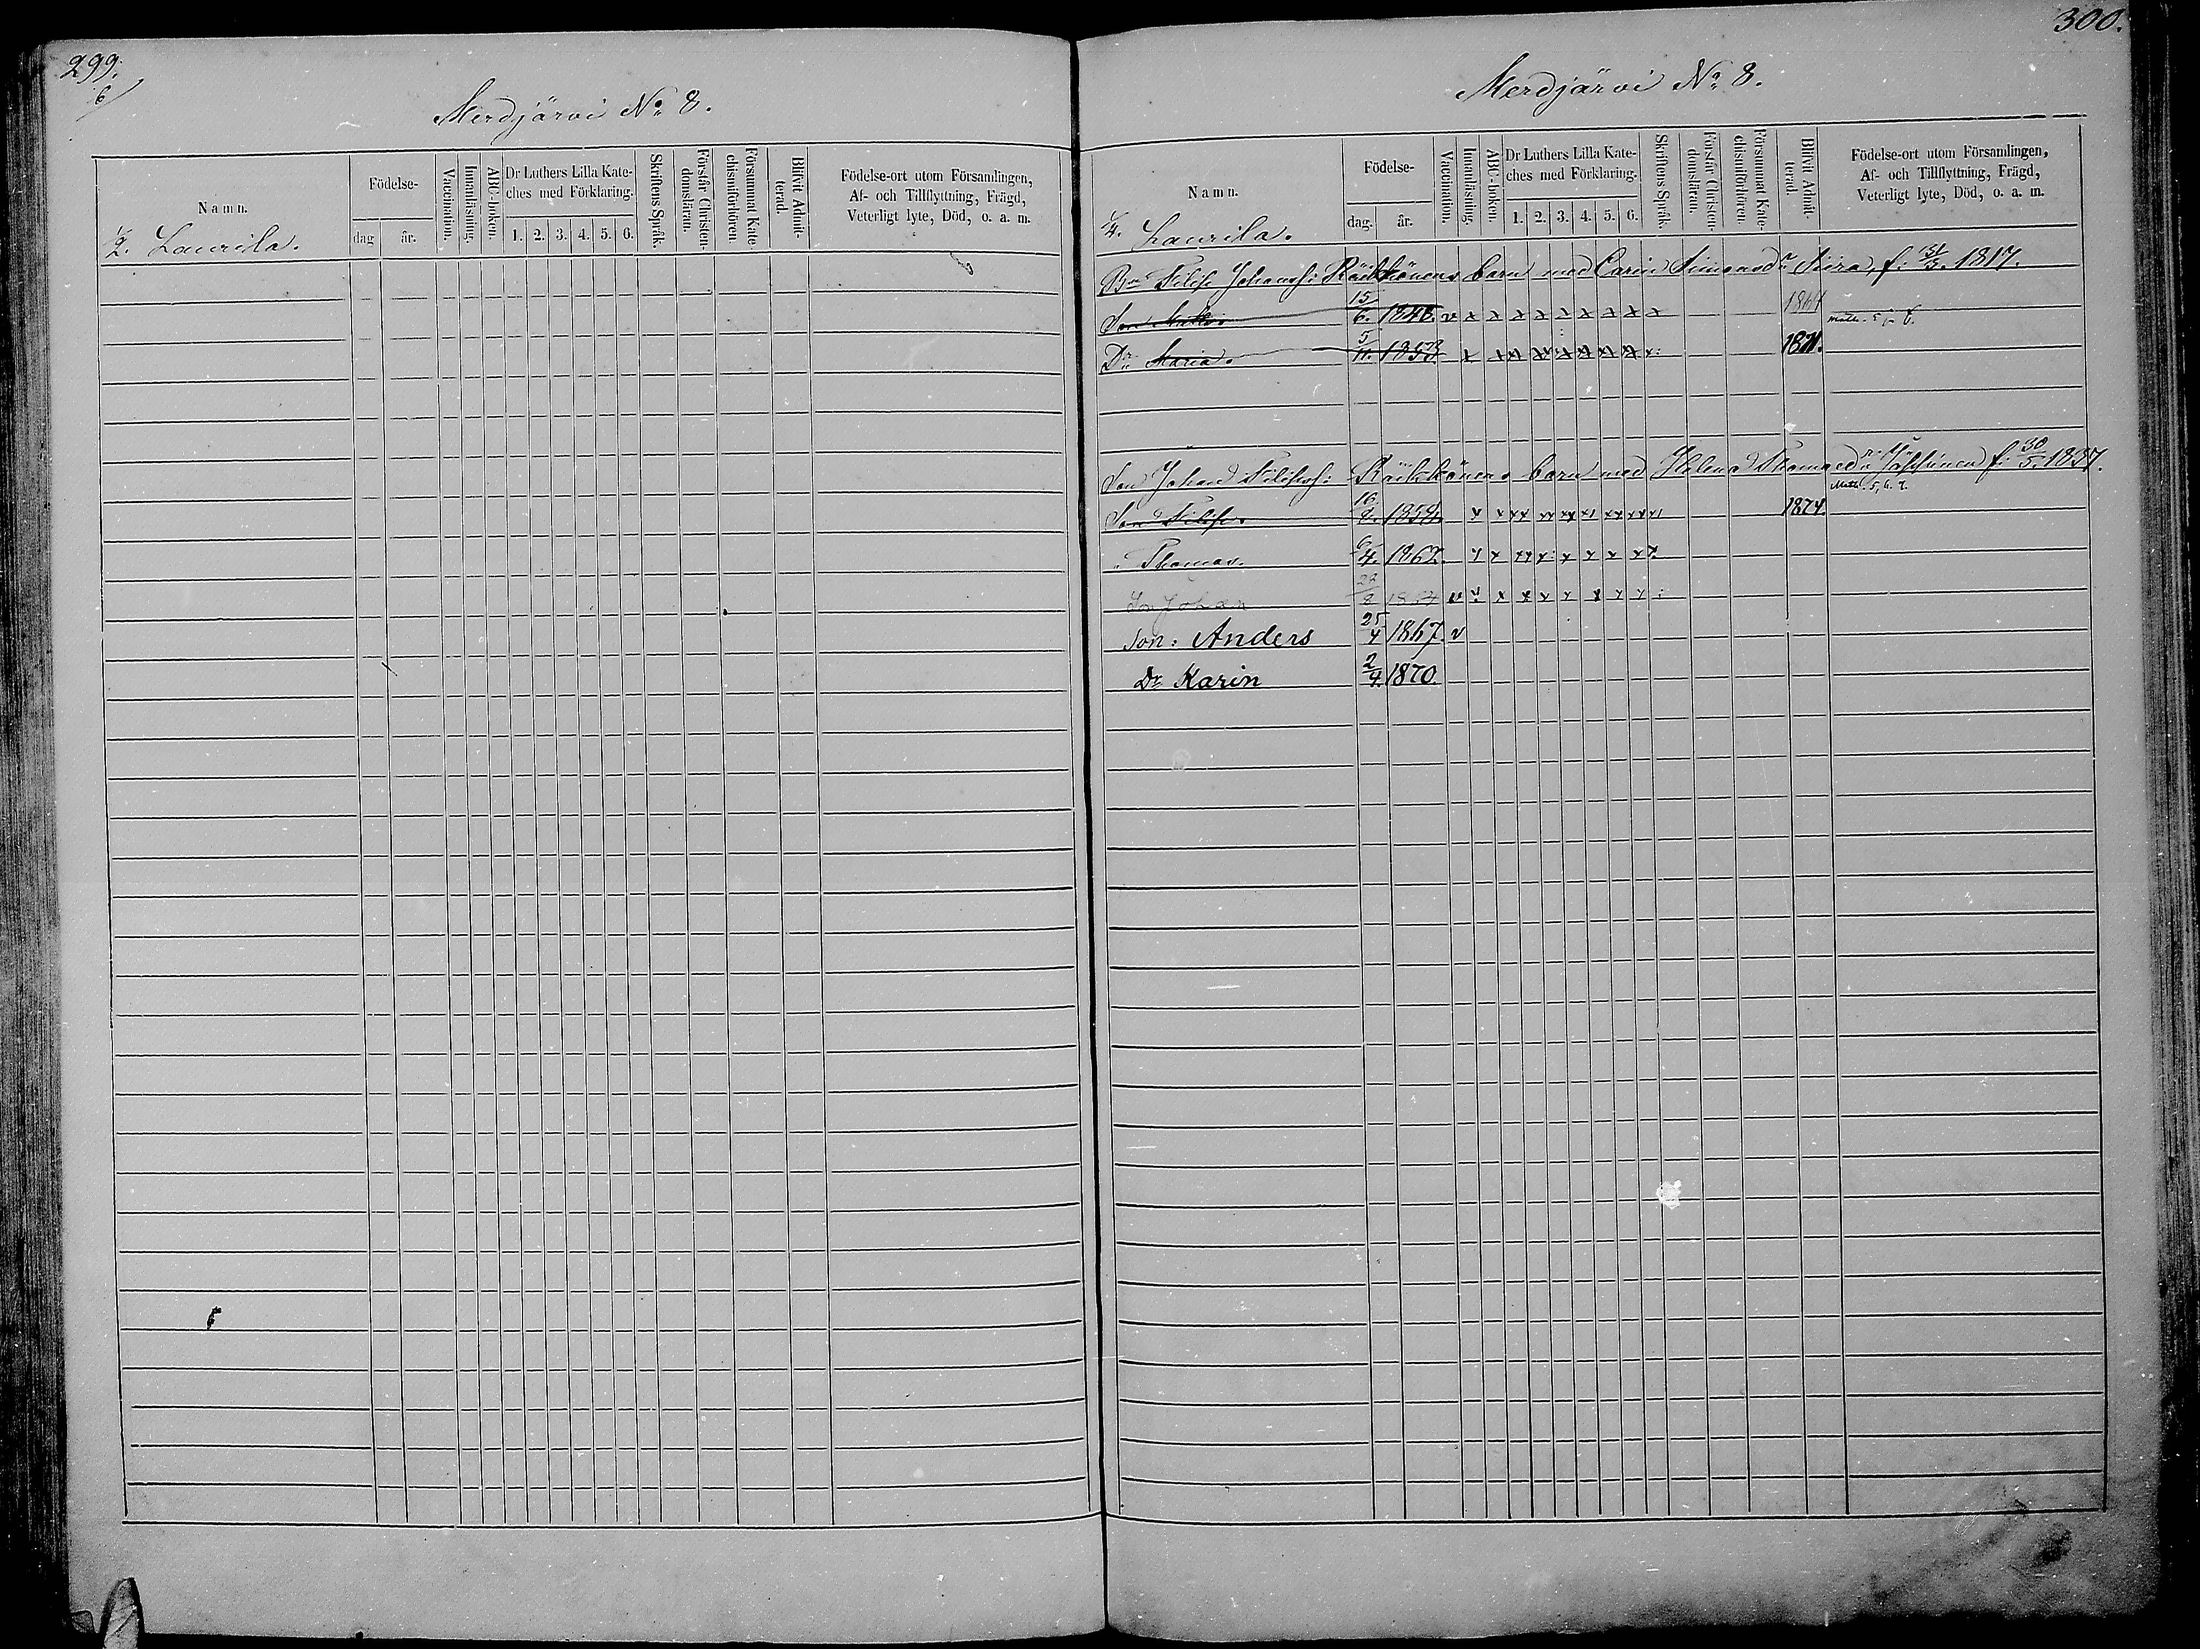 299.
6/
Merdjärvi No 8.
Namn.
Födelse-
dag
år.
Vaccination.
Innanläsning.
ABC-boken.
Dr Luthers Lilla Kate-
ches med Förklaring.
1. 2. 3. 4. 5. 6.
Skriftens Språk.
Förstår Christen-
domsläran.
Försummat Kate
chismiförhören
Blifvit Admit-
terad.
Födelse-ort utom Församlingen,
Af- och Tillflyttning, Frägd,
Veterligt lyte, Död, o. a. m.
1/2. Laurila.
300.
Merdjärvi No 8.
Namn.
Födelse-
dag.
år.
Vaccination.
Innanläsning.
ABC-boken.
Dr Luthers Lilla Kate-
ches med Förklaring.
1. 2. 3. 4. 5. 6.
Skriftens Språk.
Förstår Christen-
domsläran.
Försummat Kate-
chismiförhören.
Blifvit Admit-
terad.
Födelse-ort utom Församlingen,
Af- och Tillflyttning, Frägd,
Veterligt lyte, Död, o. a. m.
1/4. Laurila.
Bn Filip Johanss: Räikkönens barn med Carin Simonsdr Siira, f. 31/3. 1817.
Son 15/6. 1848. v x x x x x x x x x
Dr Maria. 5/11. 1853 1871.
Son Johan Filipss: Räikkönens barn med Helena Thomasdr f. 30/5. 1837.
Son Filip. 16/2. 1858. 1874.
" Thomas. 6/4. 1862.
Son Johan 22/2 1864 v
Son: Anders 25/4 1867 v
Dr Karin 2/4. 1870.